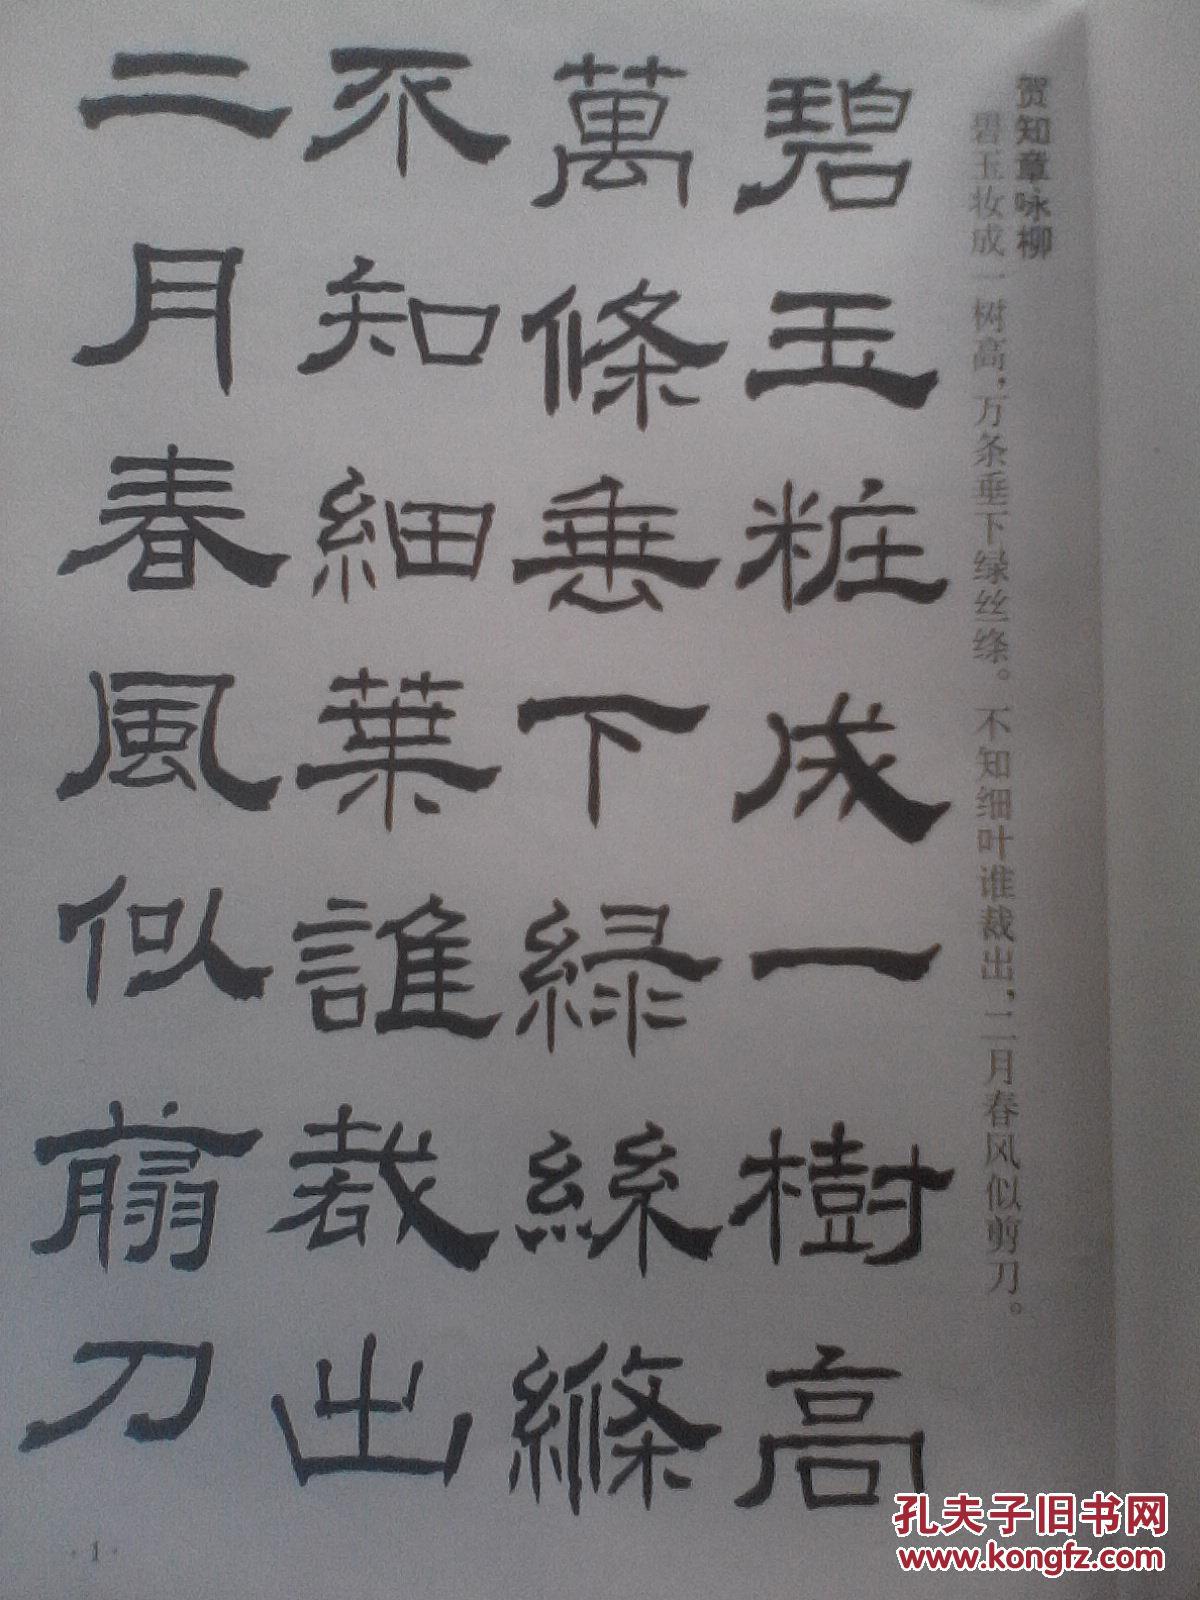 贺知章·咏柳
碧玉妆成一树高，万条垂下绿丝绦。不知细叶谁裁出，二月春风似剪刀。
碧玉粧成一樹高
萬條垂下綠絲絛
不知細葉誰裁出
二月春風似翦刀
·1·
孔夫子旧书网
www.kongfz.com